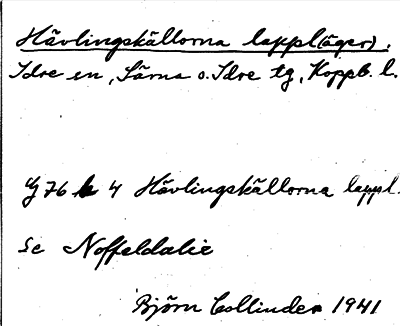 Hävlingskällorna lappl(äger).
Idre sn, Särna o. Idre tg, Koppb. l.
G 76 b 4 Hävlingskällorna lappl.
Se Noffeldalie
Björn Collinder 1941